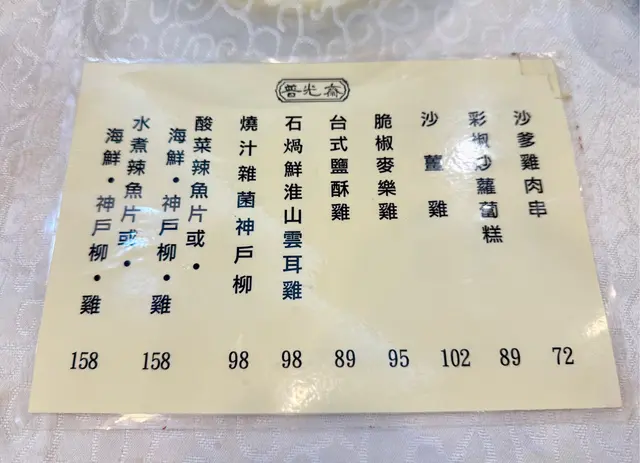 普光齋
沙爹雞肉串
彩椒炒蘿蔔糕
沙薑雞
脆椒麥樂雞
台式鹽酥雞
石焗鮮淮山雲耳雞
燒汁雜菌神戶柳
酸菜辣魚片或•
海鮮•神戶柳•雞
水煮辣魚片或•
海鮮•神戶柳•雞
158 158 98 98 89 95 102 89 72